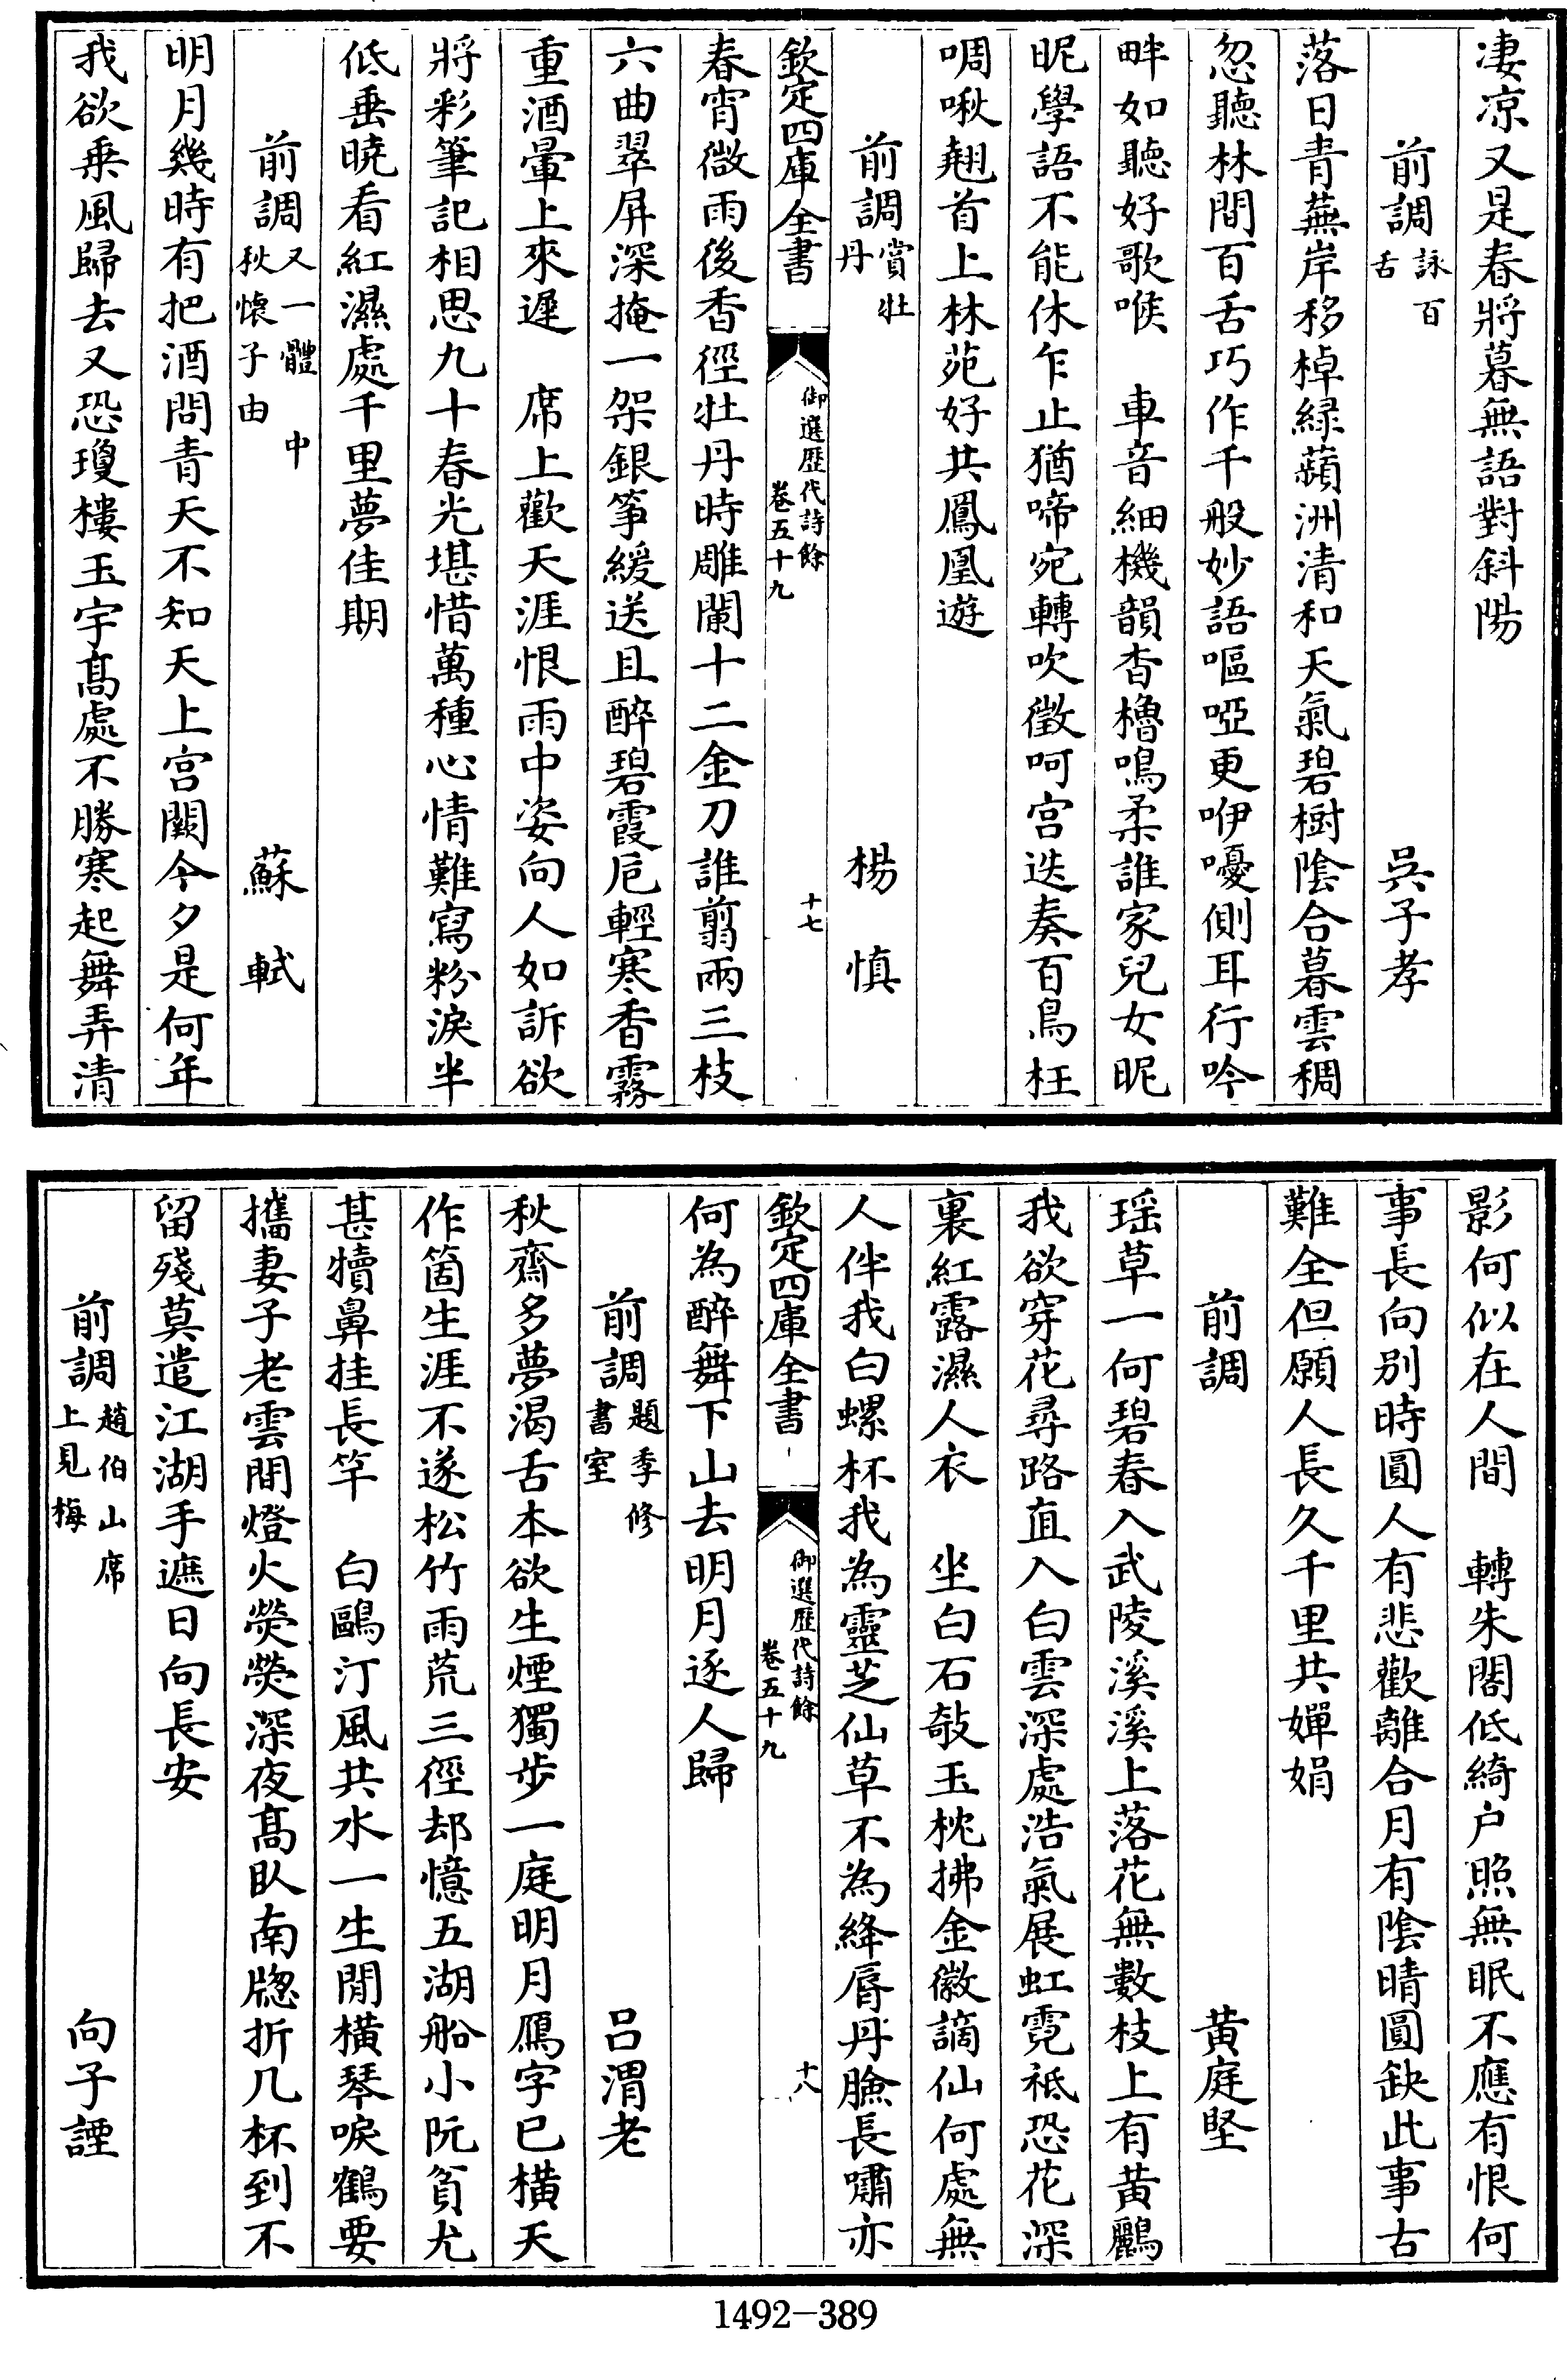 淒凉又是春將暮無語對斜陽
前調詠百舌 吳子孝
落日青蕪岸移棹緑蘋洲清和天氣碧樹陰合暮雲稠
忽聽林間百舌巧作千般妙語嘔啞更咿嚘側耳行吟
畔如聽好歌喉 車音細機韻杳櫓鳴柔誰家兒女昵
昵學語不能休乍止猶啼宛轉吹徵呵宫迭奏百鳥枉
啁啾翹首上林苑好共鳳凰遊
前調賞牡丹 楊慎
欽定四庫全書 御選歷代詩餘卷五十九 十七
春宵微雨後香徑牡丹時雕闌十二金刀誰翦兩三枝
六曲翠屏深掩一架銀筝緩送且醉碧霞卮輕寒香霧
重酒暈上來遲 席上歡天涯恨雨中姿向人如訴欲
將彩筆記相思九十春光堪惜萬種心情難寫粉淚半
低垂曉看紅濕處千里夢佳期
前調又一體 中秋懷子由 蘇軾
明月幾時有把酒問青天不知天上宫闕今夕是何年
我欲乘風歸去又恐瓊樓玉宇髙處不勝寒起舞弄清
影何似在人間 轉朱閣低綺户照無眠不應有恨何
事長向别時圓人有悲歡離合月有陰晴圓缺此事古
難全但願人長久千里共嬋娟
前調 黄庭堅
瑶草一何碧春入武陵溪溪上落花無數枝上有黄鸝
我欲穿花尋路直入白雲深處浩氣展虹霓祗恐花深
裏紅露濕人衣 坐白石敲玉枕拂金徽謫仙何處無
人伴我白螺杯我為靈芝仙草不為絳唇丹臉長嘯亦
欽定四庫全書 御選歷代詩餘卷五十九 十八
何為醉舞下山去明月逐人歸
前調題季修書室 吕渭老
秋齋多夢渴舌本欲生煙獨步一庭明月鴈字已横天
作箇生涯不遂松竹雨荒三徑却憶五湖船小阮貧尤
甚犢鼻挂長竿 白鷗汀風共水一生閒横琴唳鶴要
攜妻子老雲間燈火熒熒深夜髙臥南牕折几杯到不
留殘莫遣江湖手遮日向長安
前調趙伯山席上見梅 向子諲
1492-389